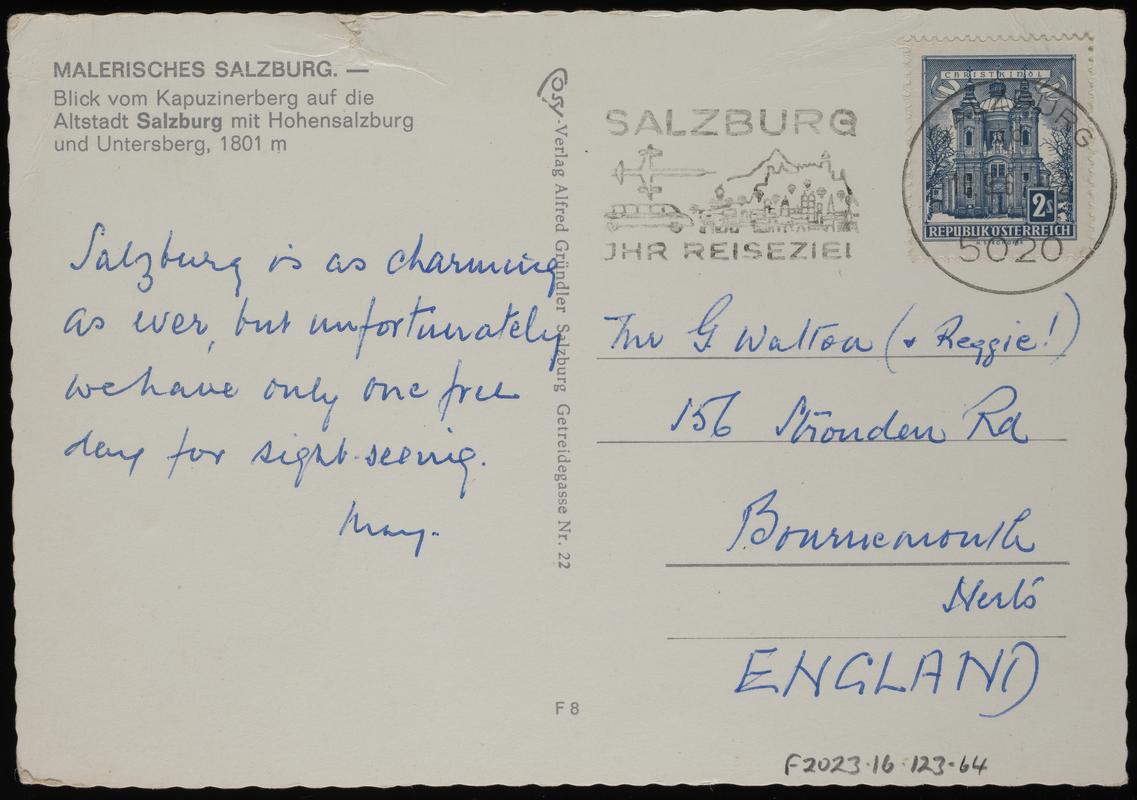 MALERISCHES SALZBURG. —
Blick vom Kapuzinerberg auf die
Altstadt Salzburg mit Hohensalzburg
und Untersberg, 1801 m
Salzburg is as charming
as ever, but unfortunately
we have only one free
day for sight-seeing.
May.
Cosy-Verlag Alfred Gründler Salzburg Getreidegasse Nr. 22
F 8
SALZBURG
JHR REISEZIEL
CHRISTKINDL
2s
REPUBLIK ÖSTERREICH
SALZBURG
5020
G Walton (+ Reggie!)
156 Rd
Bournemouth
ENGLAND
F2023.16.123.64